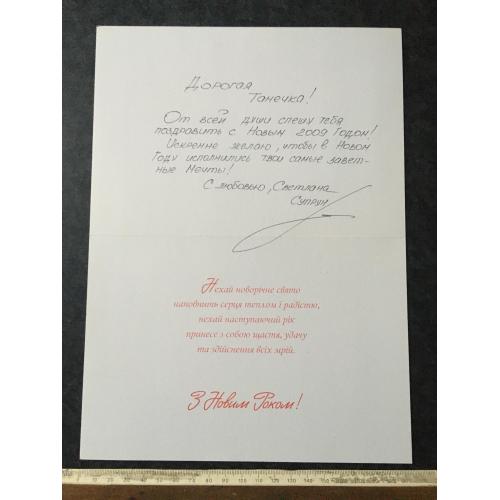 Дорогая
Танечка!
От всей души спешу тебя
поздравить с Новым 2009 Годом!
Искренне желаю, чтобы в Новом
Году исполнились твои самые завет-
ные мечты!
С любовью, Светлана
Супрун
Нехай новорічне свято
наповнить серця теплом і радістю,
нехай наступаючий рік
принесе з собою щастя, удачу
та здійснення всіх мрій.
З Новим Роком!